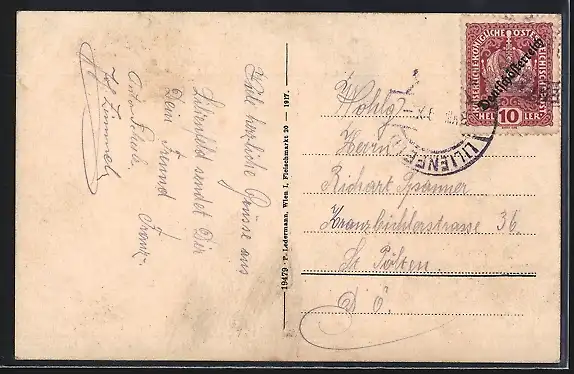 Viele herzliche Grüsse aus
Lilienfeld sendet Dir
Dein Freund
Franz.
19479 · P. Ledermann, Wien I, Fleischmarkt 20 — 1917.
KAISERLICHE KÖNIGLICHE ÖSTERREICHISCHE POST
Deutschösterreich
10
HELLER
LILIENFELD
Wohlg.
Herrn
Richart Spanner
Kranzbichlerstrasse 36.
St Pölten.
D. Ö.